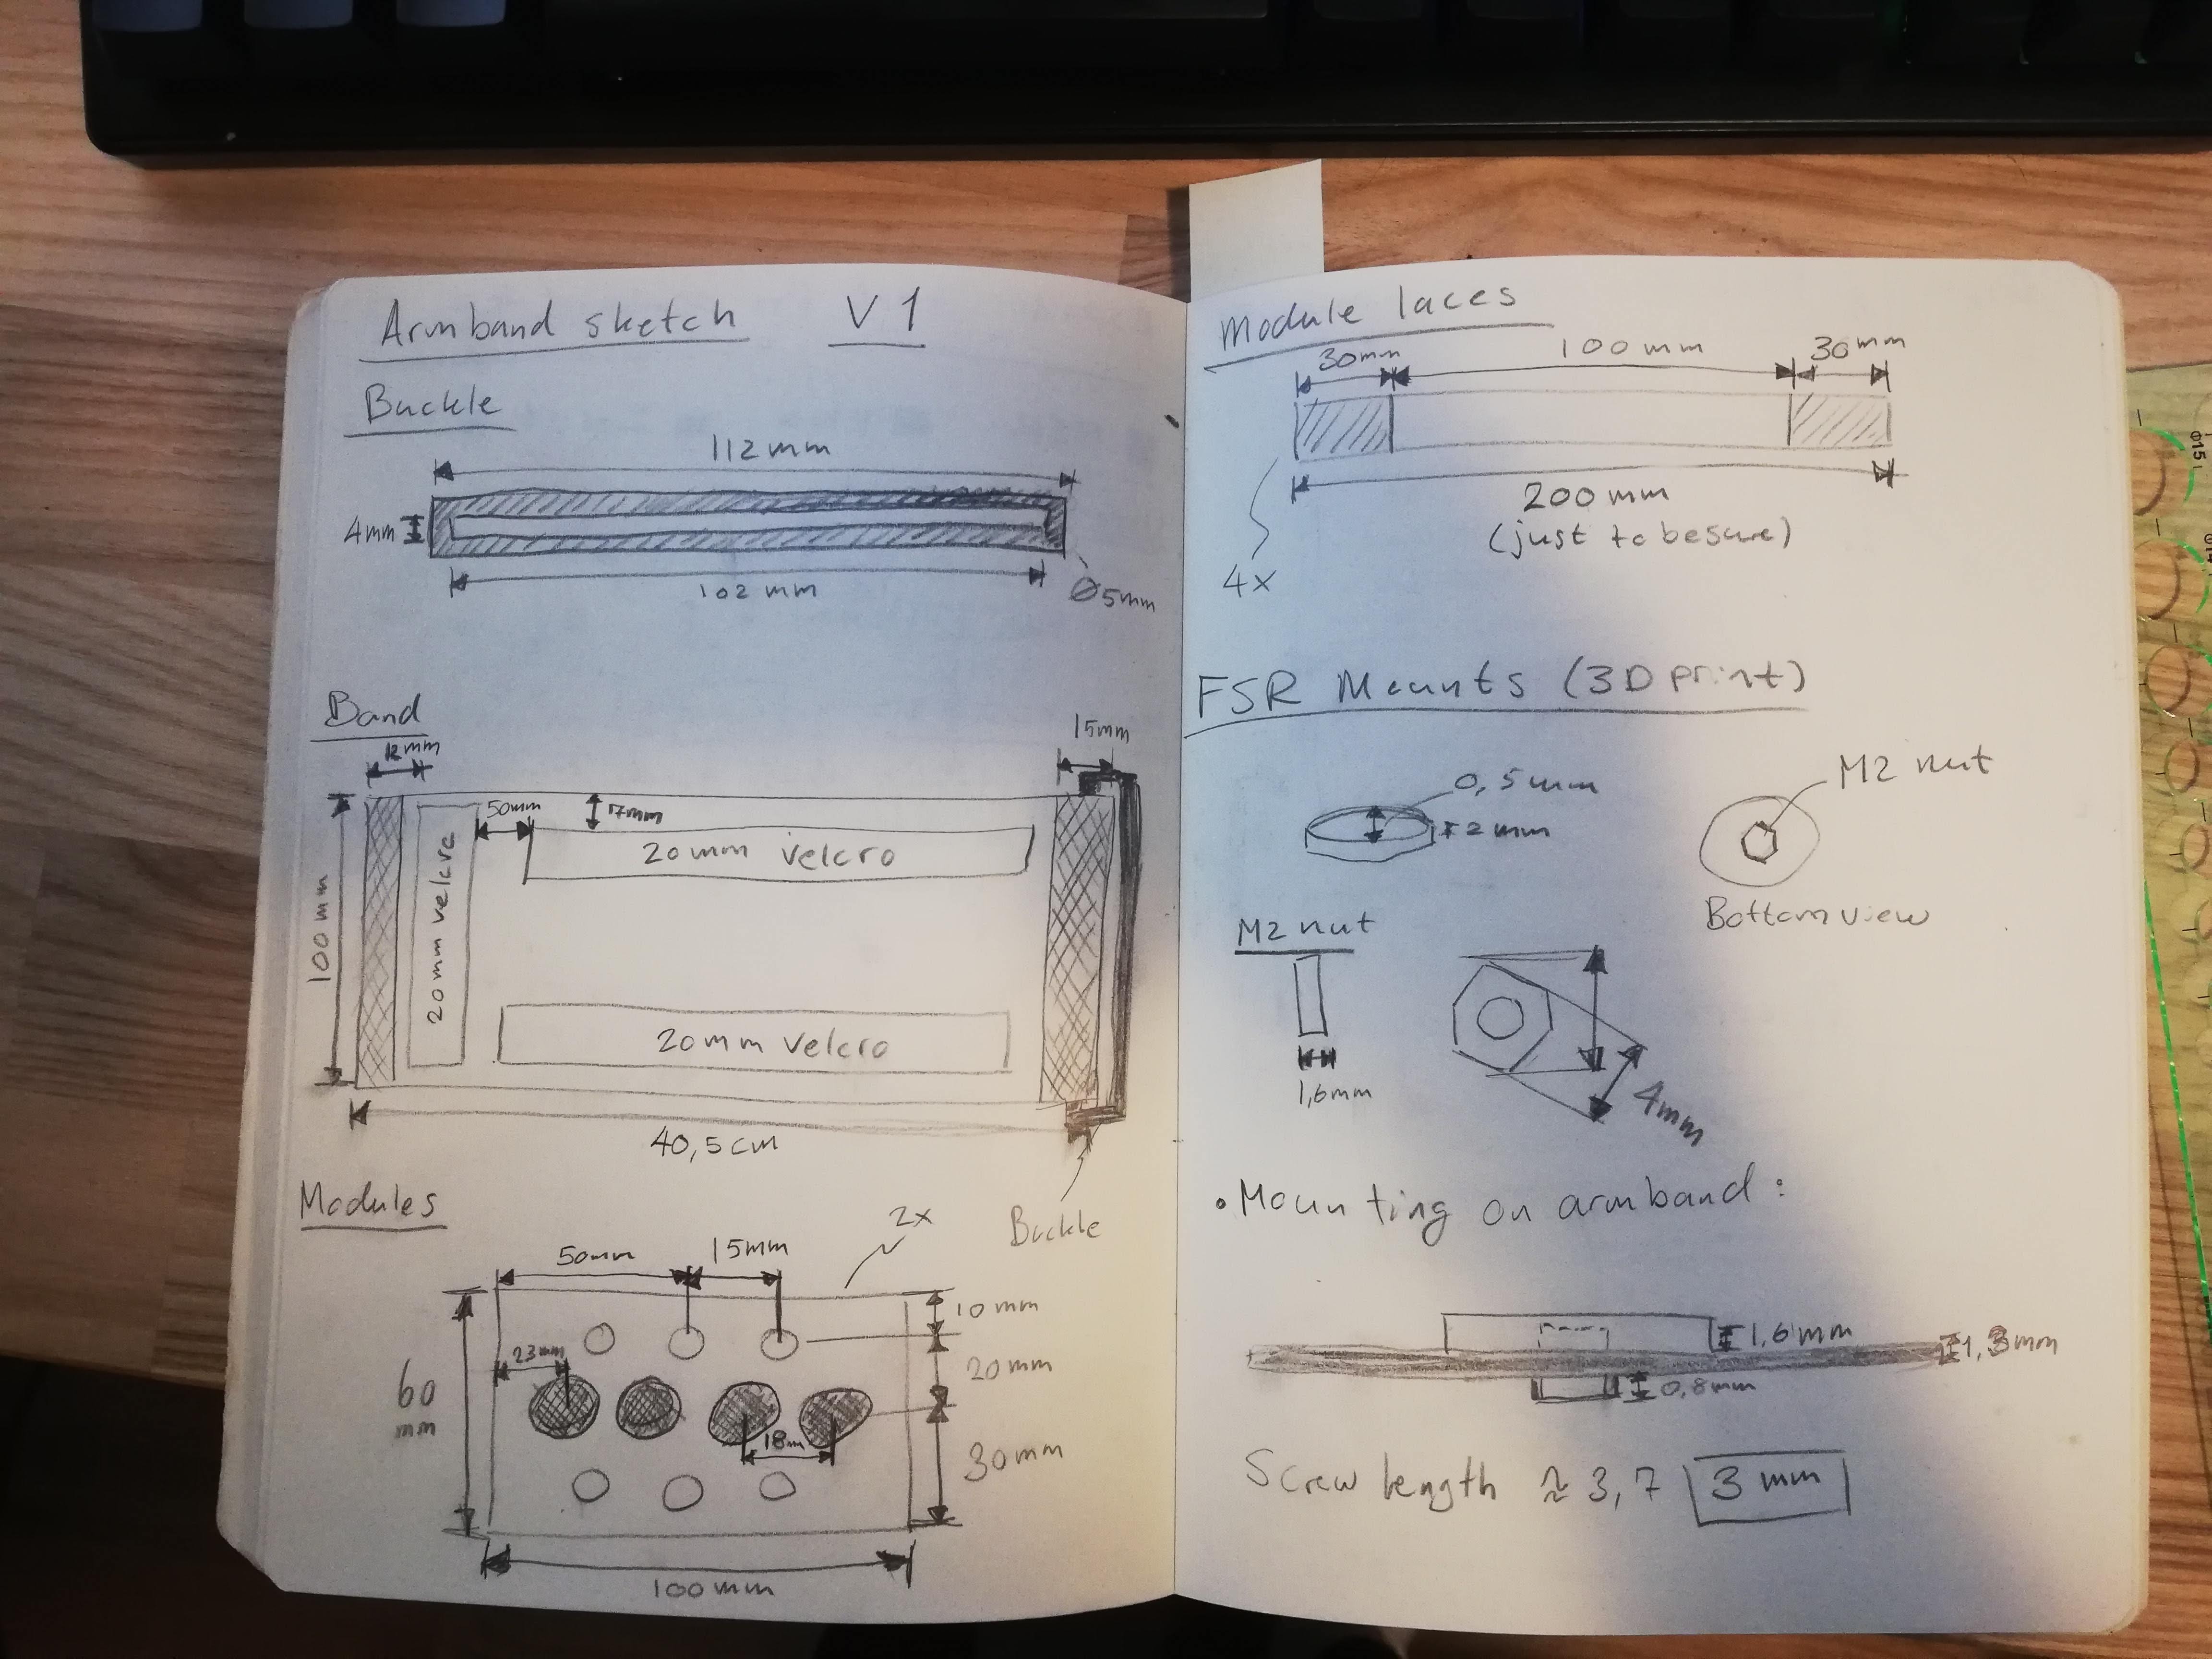 Armband sketch V1
Buckle
112mm
4mm
102mm
Ø5mm
Band
12mm
15mm
50mm
17mm
20mm velcro
20mm velcro
100mm
20mm velcro
40,5cm
Buckle
Modules
2x
50mm
15mm
10mm
23mm
20mm
60
mm
18m
30mm
100mm
Module laces
30mm
100mm
30mm
200mm
(just to besure)
4x
FSR Mounts (3D print)
0,5mm
2mm
M2 nut
Bottom view
M2 nut
1,6mm
4mm
• Mounting on armband:
1,6mm
1,3mm
0,8mm
Screw length ≈ 3,7 3mm
015